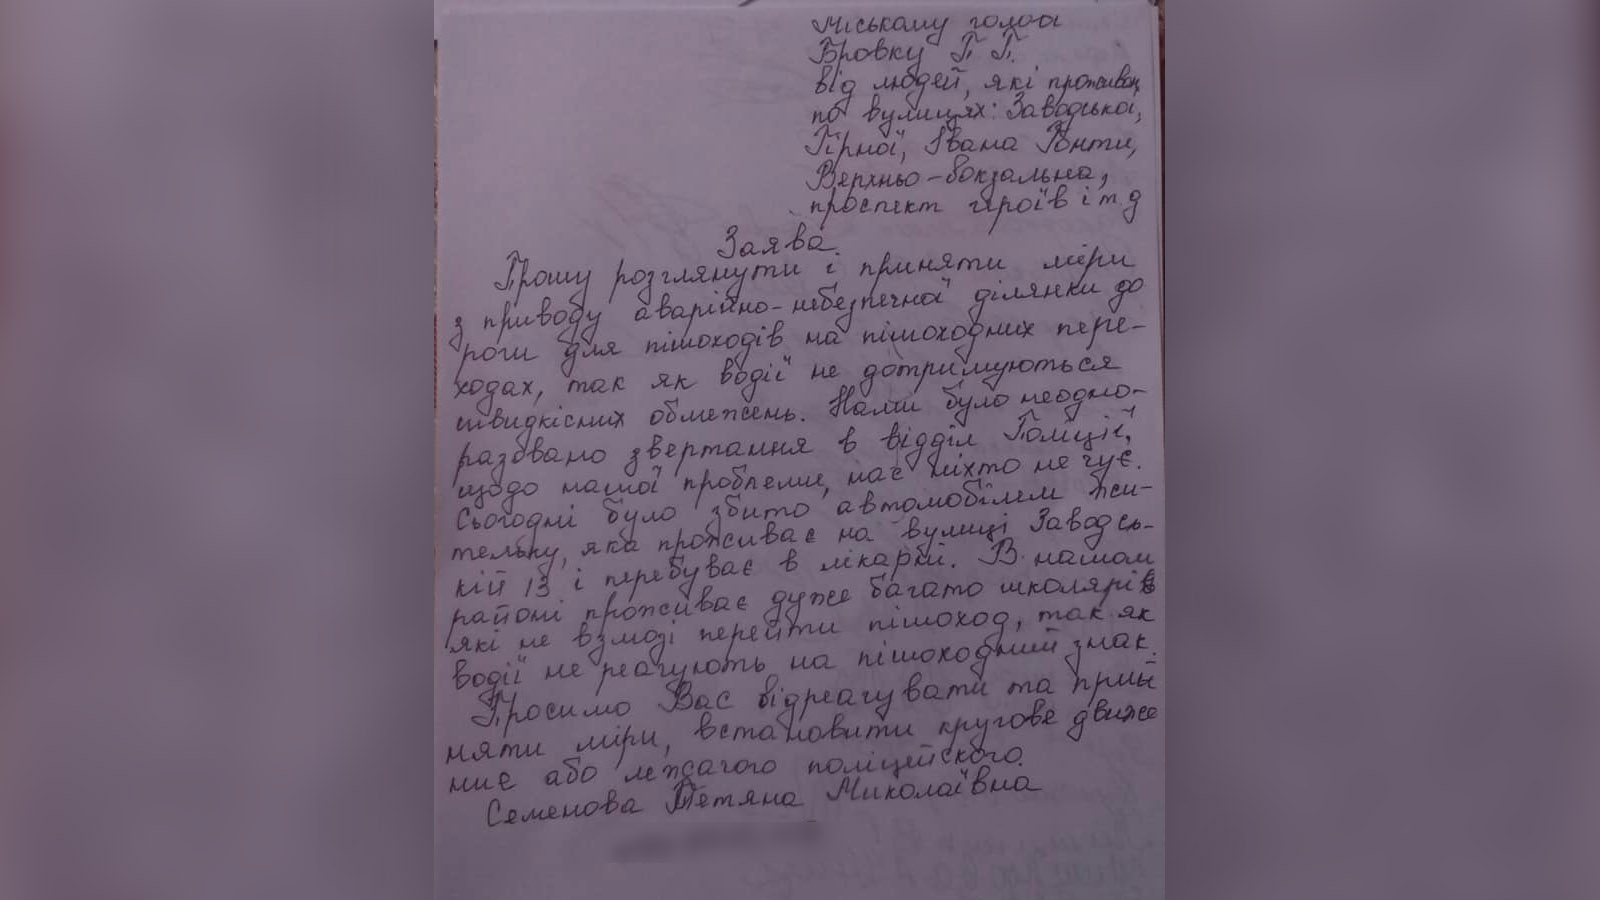 Міському голові
Бровку Г. Г.
від людей, які проживають
по вулицях: Заводська,
Гірної, Івана Гонти,
Верхньо-вокзальна,
проспект героїв і т д
Заява.
Прошу розглянути і приняти міри
з приводу аварійно-небезпечної ділянки до
роги для пішоходів на пішоходних пере-
ходах, так як водії не дотримуються
швидкісних обмежень. Нами було неодно-
разовано звертання в відділ Поліції,
щодо нашої проблеми, нас ніхто не чує.
Сьогодні було збито автомобілем жи-
тельку, яка проживає на вулиці Заводсь-
кій 13 і перебуває в лікарні. В нашом
районі проживає дуже багато школярів
які не взмозі перейти пішоход, так як
водії не реагують на пішоходний знак.
Просимо Вас відреагувати та прий
няти міри, встановити кругове движе
ниє або лежачого поліцейського.
Семенова Тетяна Миколаївна